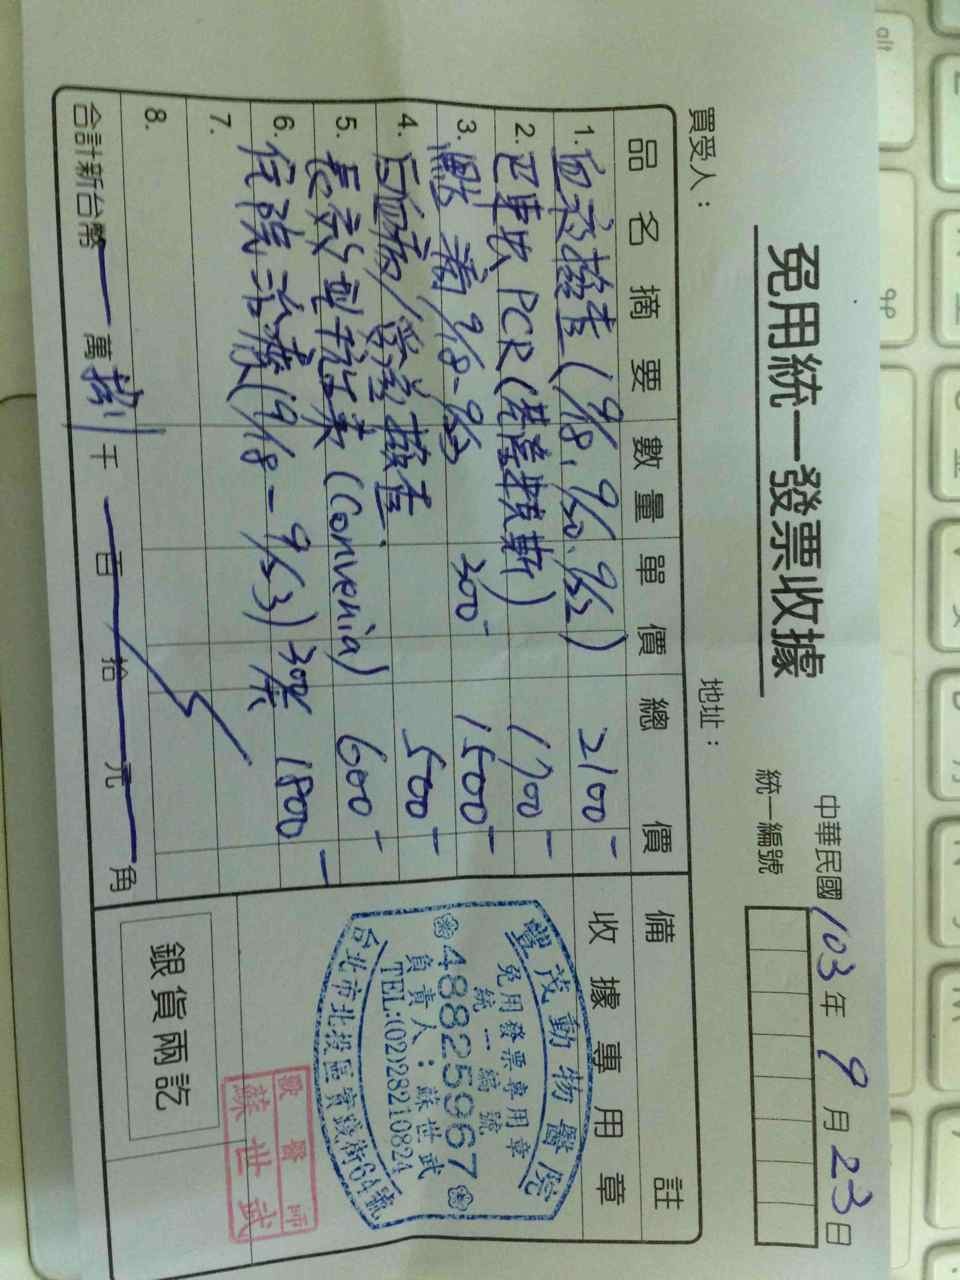 免用統一發票收據
中華民國103年9月23日
統一編號
買受人：
地址：
品名摘要 數量 單價 總價 備註
1. 血液檢查(9/18, 9/20, 9/22) 2100-
2. 巴東虫PCR(基學精斯) 1700-
3. 點滴 9/18-9/23 300- 1500-
4. 白血病/愛滋檢查 500-
5. 長效型抗生素(Convenia) 600-
6. 住院治療(9/18-9/23) 300/天 1800-
7.
8.
合計新台幣 萬捌千 百 拾 元 角
收據專用章
豐茂動物醫院
免用發票專用章
統一編號
48825967
負責人：蘇世武
TEL:(02)28210824
台北市北投區實踐街64號
獸醫師
蘇世武
銀貨兩訖
alt